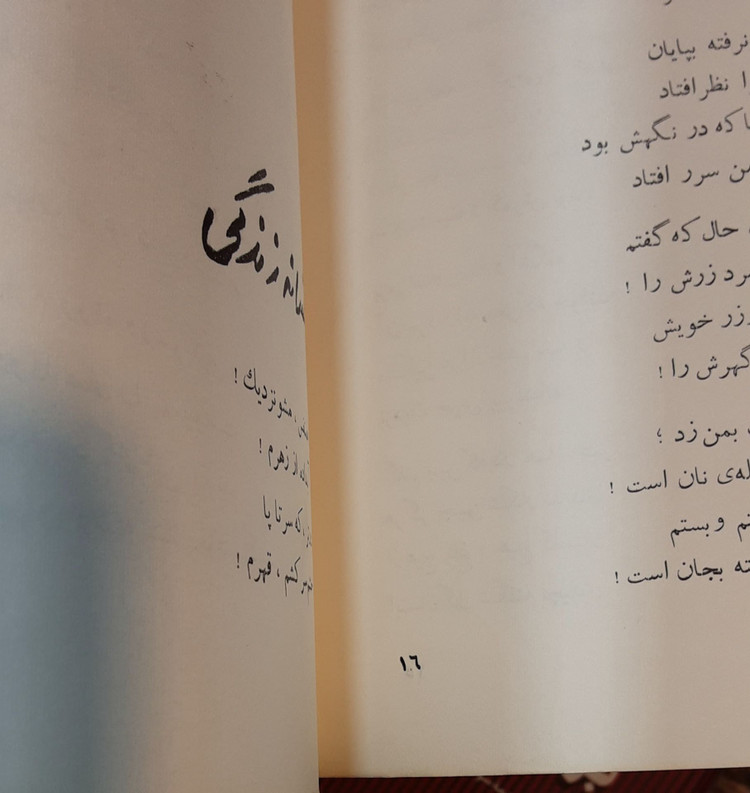 نرفته بپایان
نظر افتاد
که در نگهش بود
سرر افتاد
حال که گفتم
زرش را !
خویش
گهرش را !
بمن زد ؛
نان است !
وبستم
بجان است !
۱٦
زندگی
، مشو نزدیك !
از زهرم !
، که سر تا پا
کشم ، قهرم !